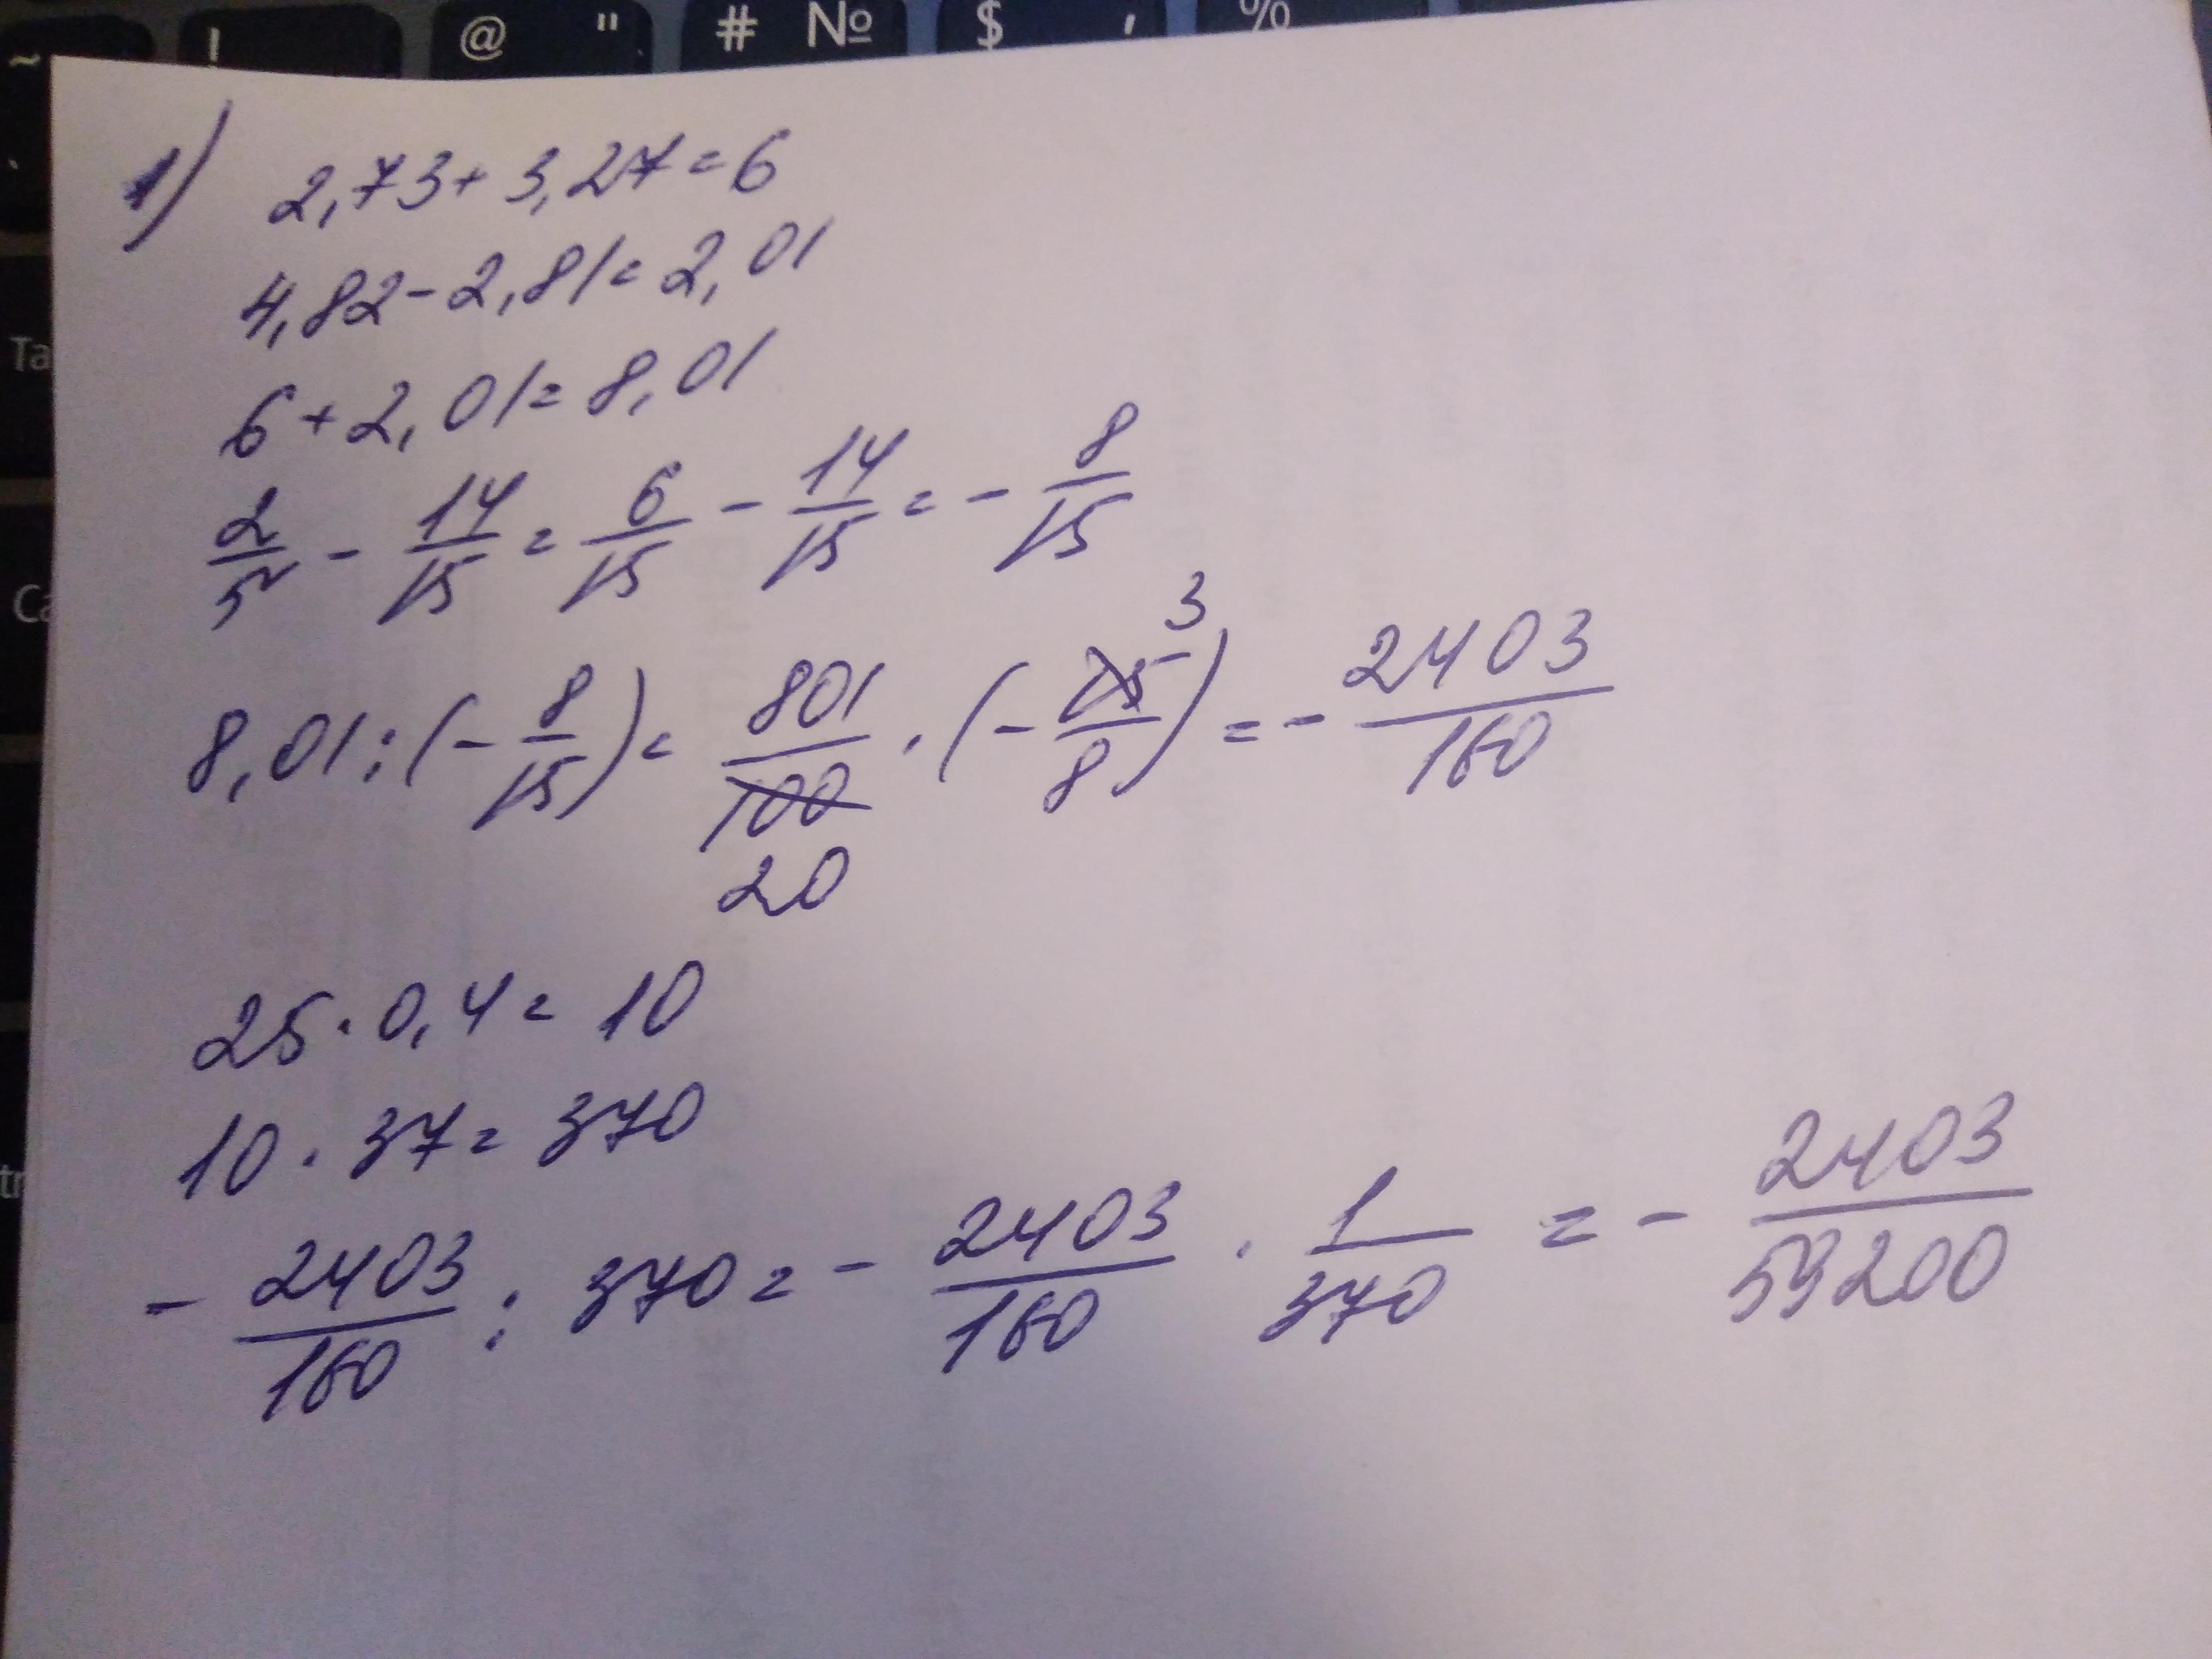 ~ ! @ " # № $ , %
Ta
Ca
tr
1) 2,73 + 3,27 = 6
4,82 - 2,81 = 2,01
6 + 2,01 = 8,01
2/5 - 14/15 = 6/15 - 14/15 = - 8/15
8,01 : (- 8/15) = 801/100 · (- 15/8) = - 2403/160
3
20
25 · 0,4 = 10
10 · 37 = 370
- 2403/160 : 370 = - 2403/160 · 1/370 = - 2403/59200